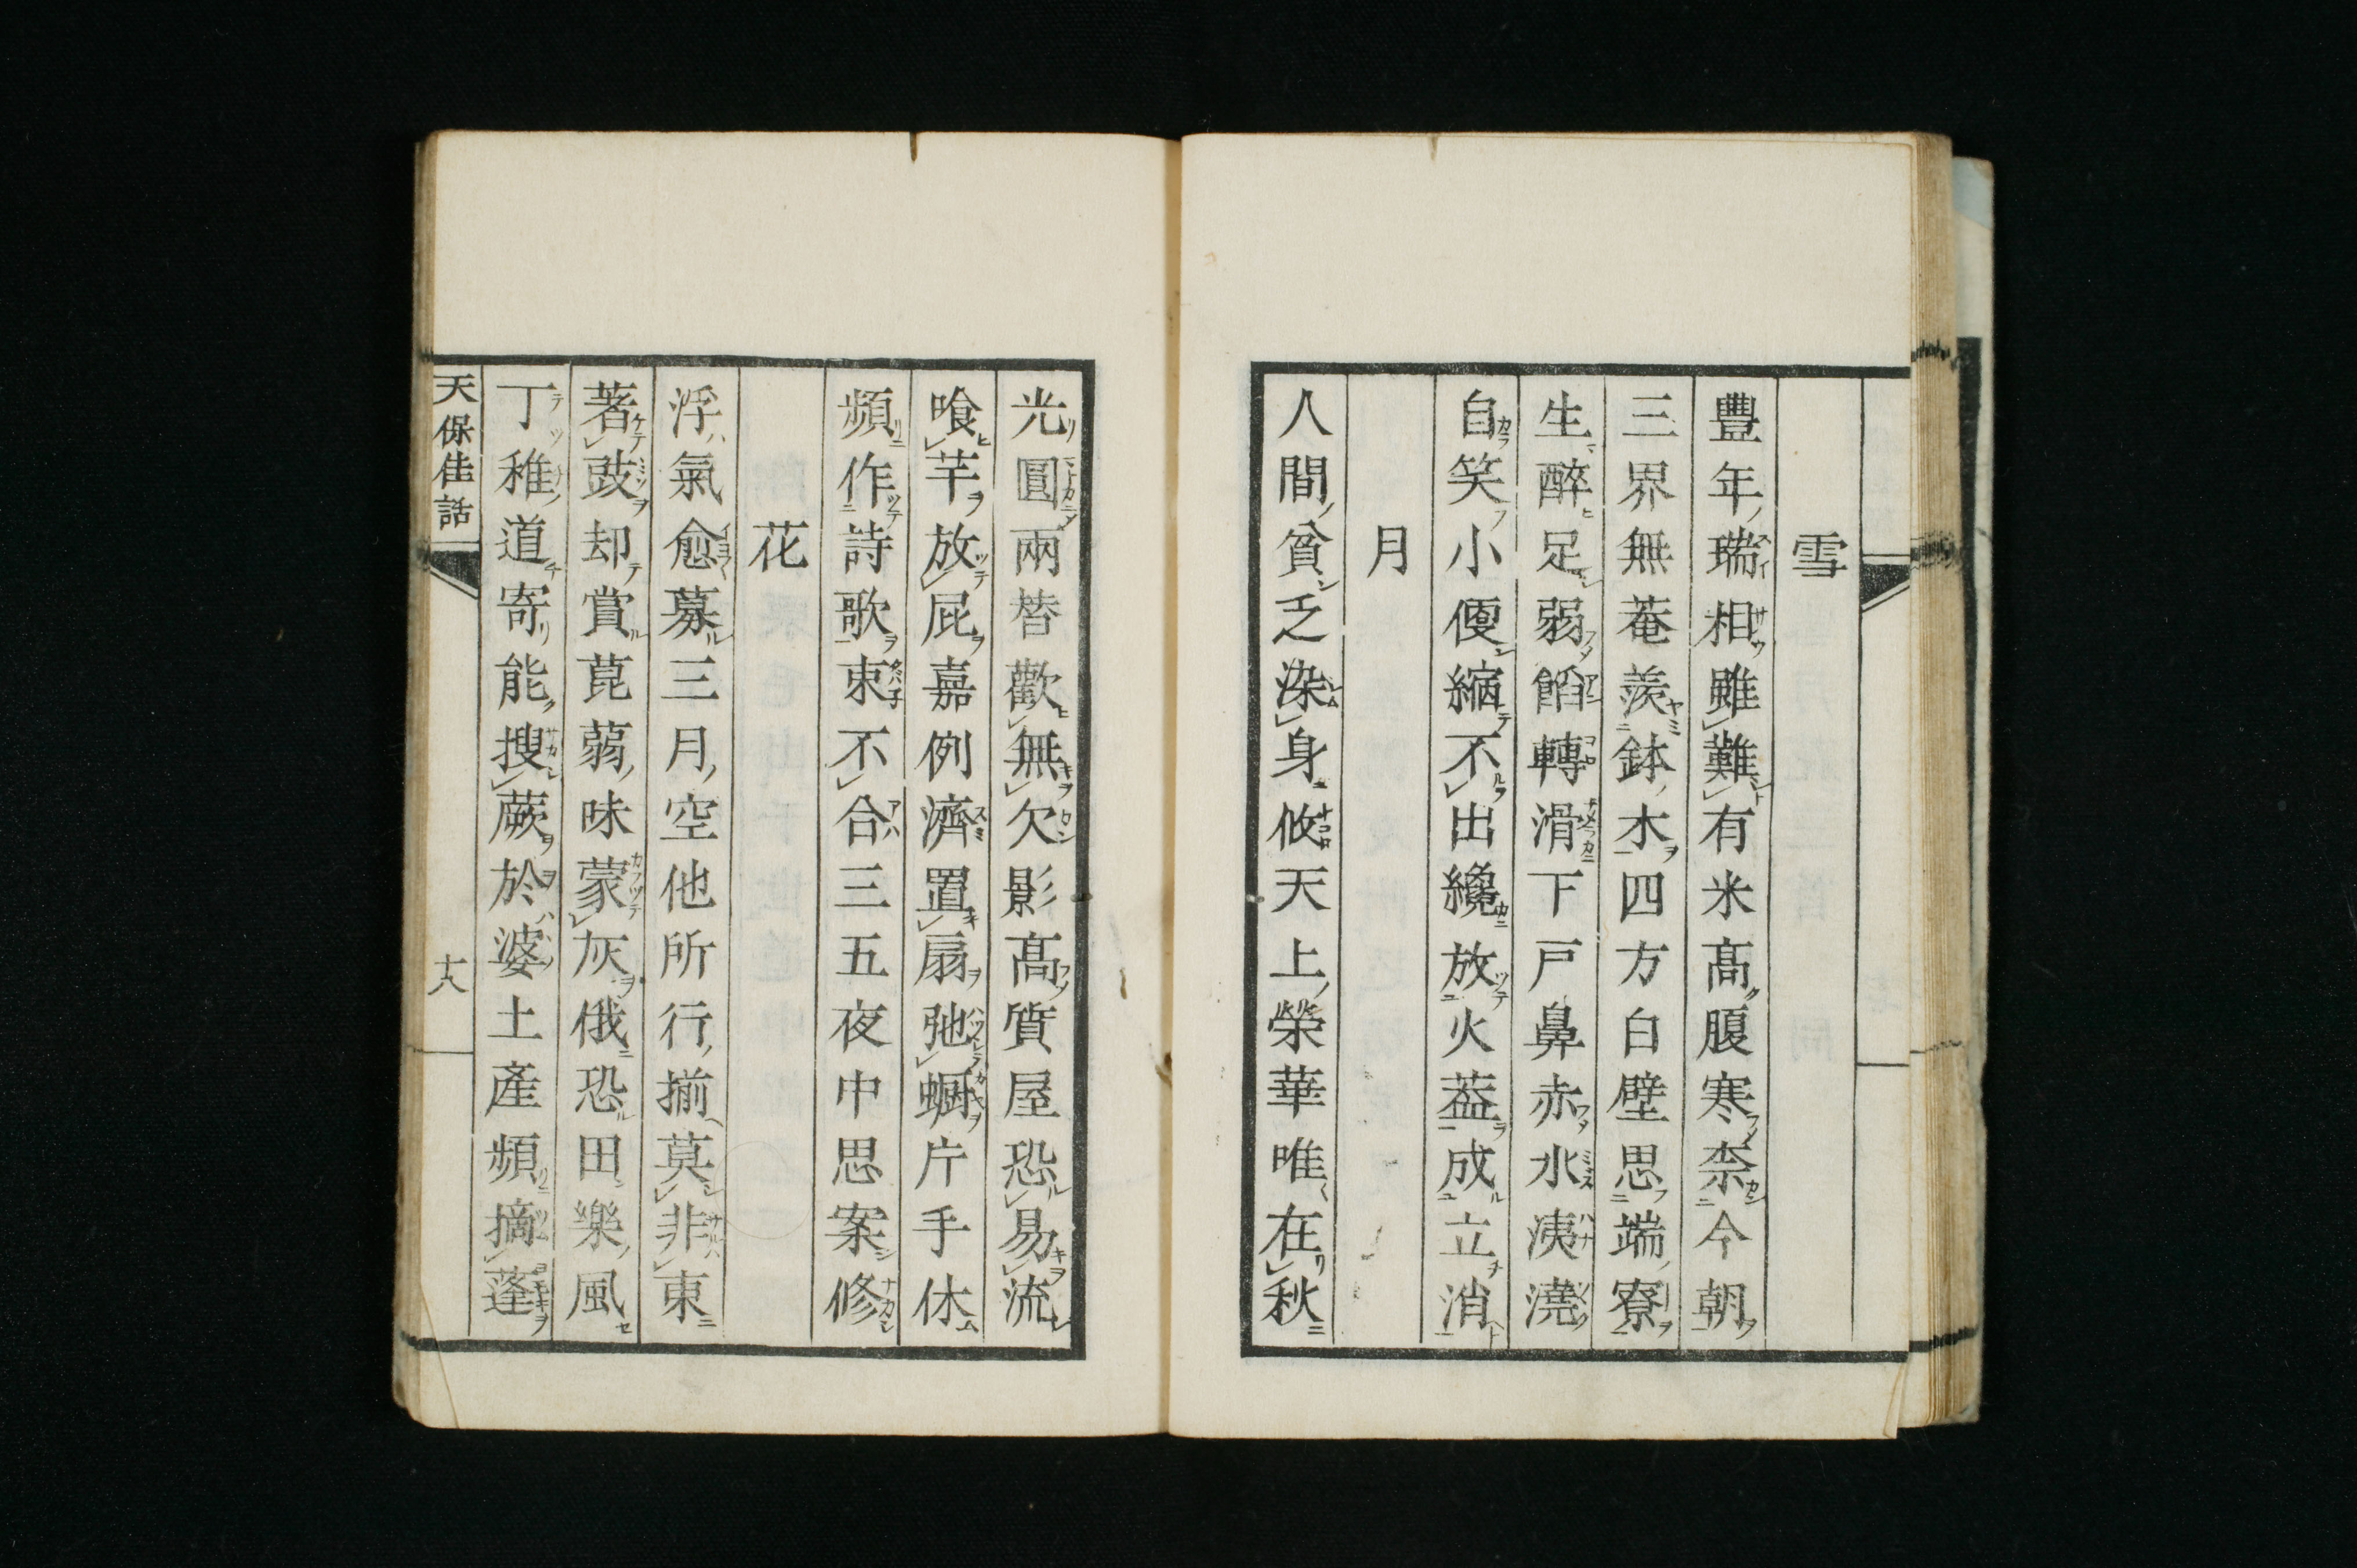 雪
豐年瑞相雖難有米髙腹寒奈今朝
三界無菴羨鉢木四方白壁思端寮
生醉足弱餡轉滑下戸鼻赤水洟澆
自笑小便縮不出纔放火葢成立消
月
人間貧乏染身攸天上榮華唯在秋
光圓兩替歡無欠影髙質屋恐易流
喰芋放屁嘉例濟置扇弛蜩片手休
頻作詩歌束不合三五夜中思案修
花
浮氣愈募三月空他所行揃莫非東
著豉却賞菎蒻味蒙灰俄恐田樂風
丁稚道寄能搜蕨於婆土產頻摘蓬
天保佳話
十八